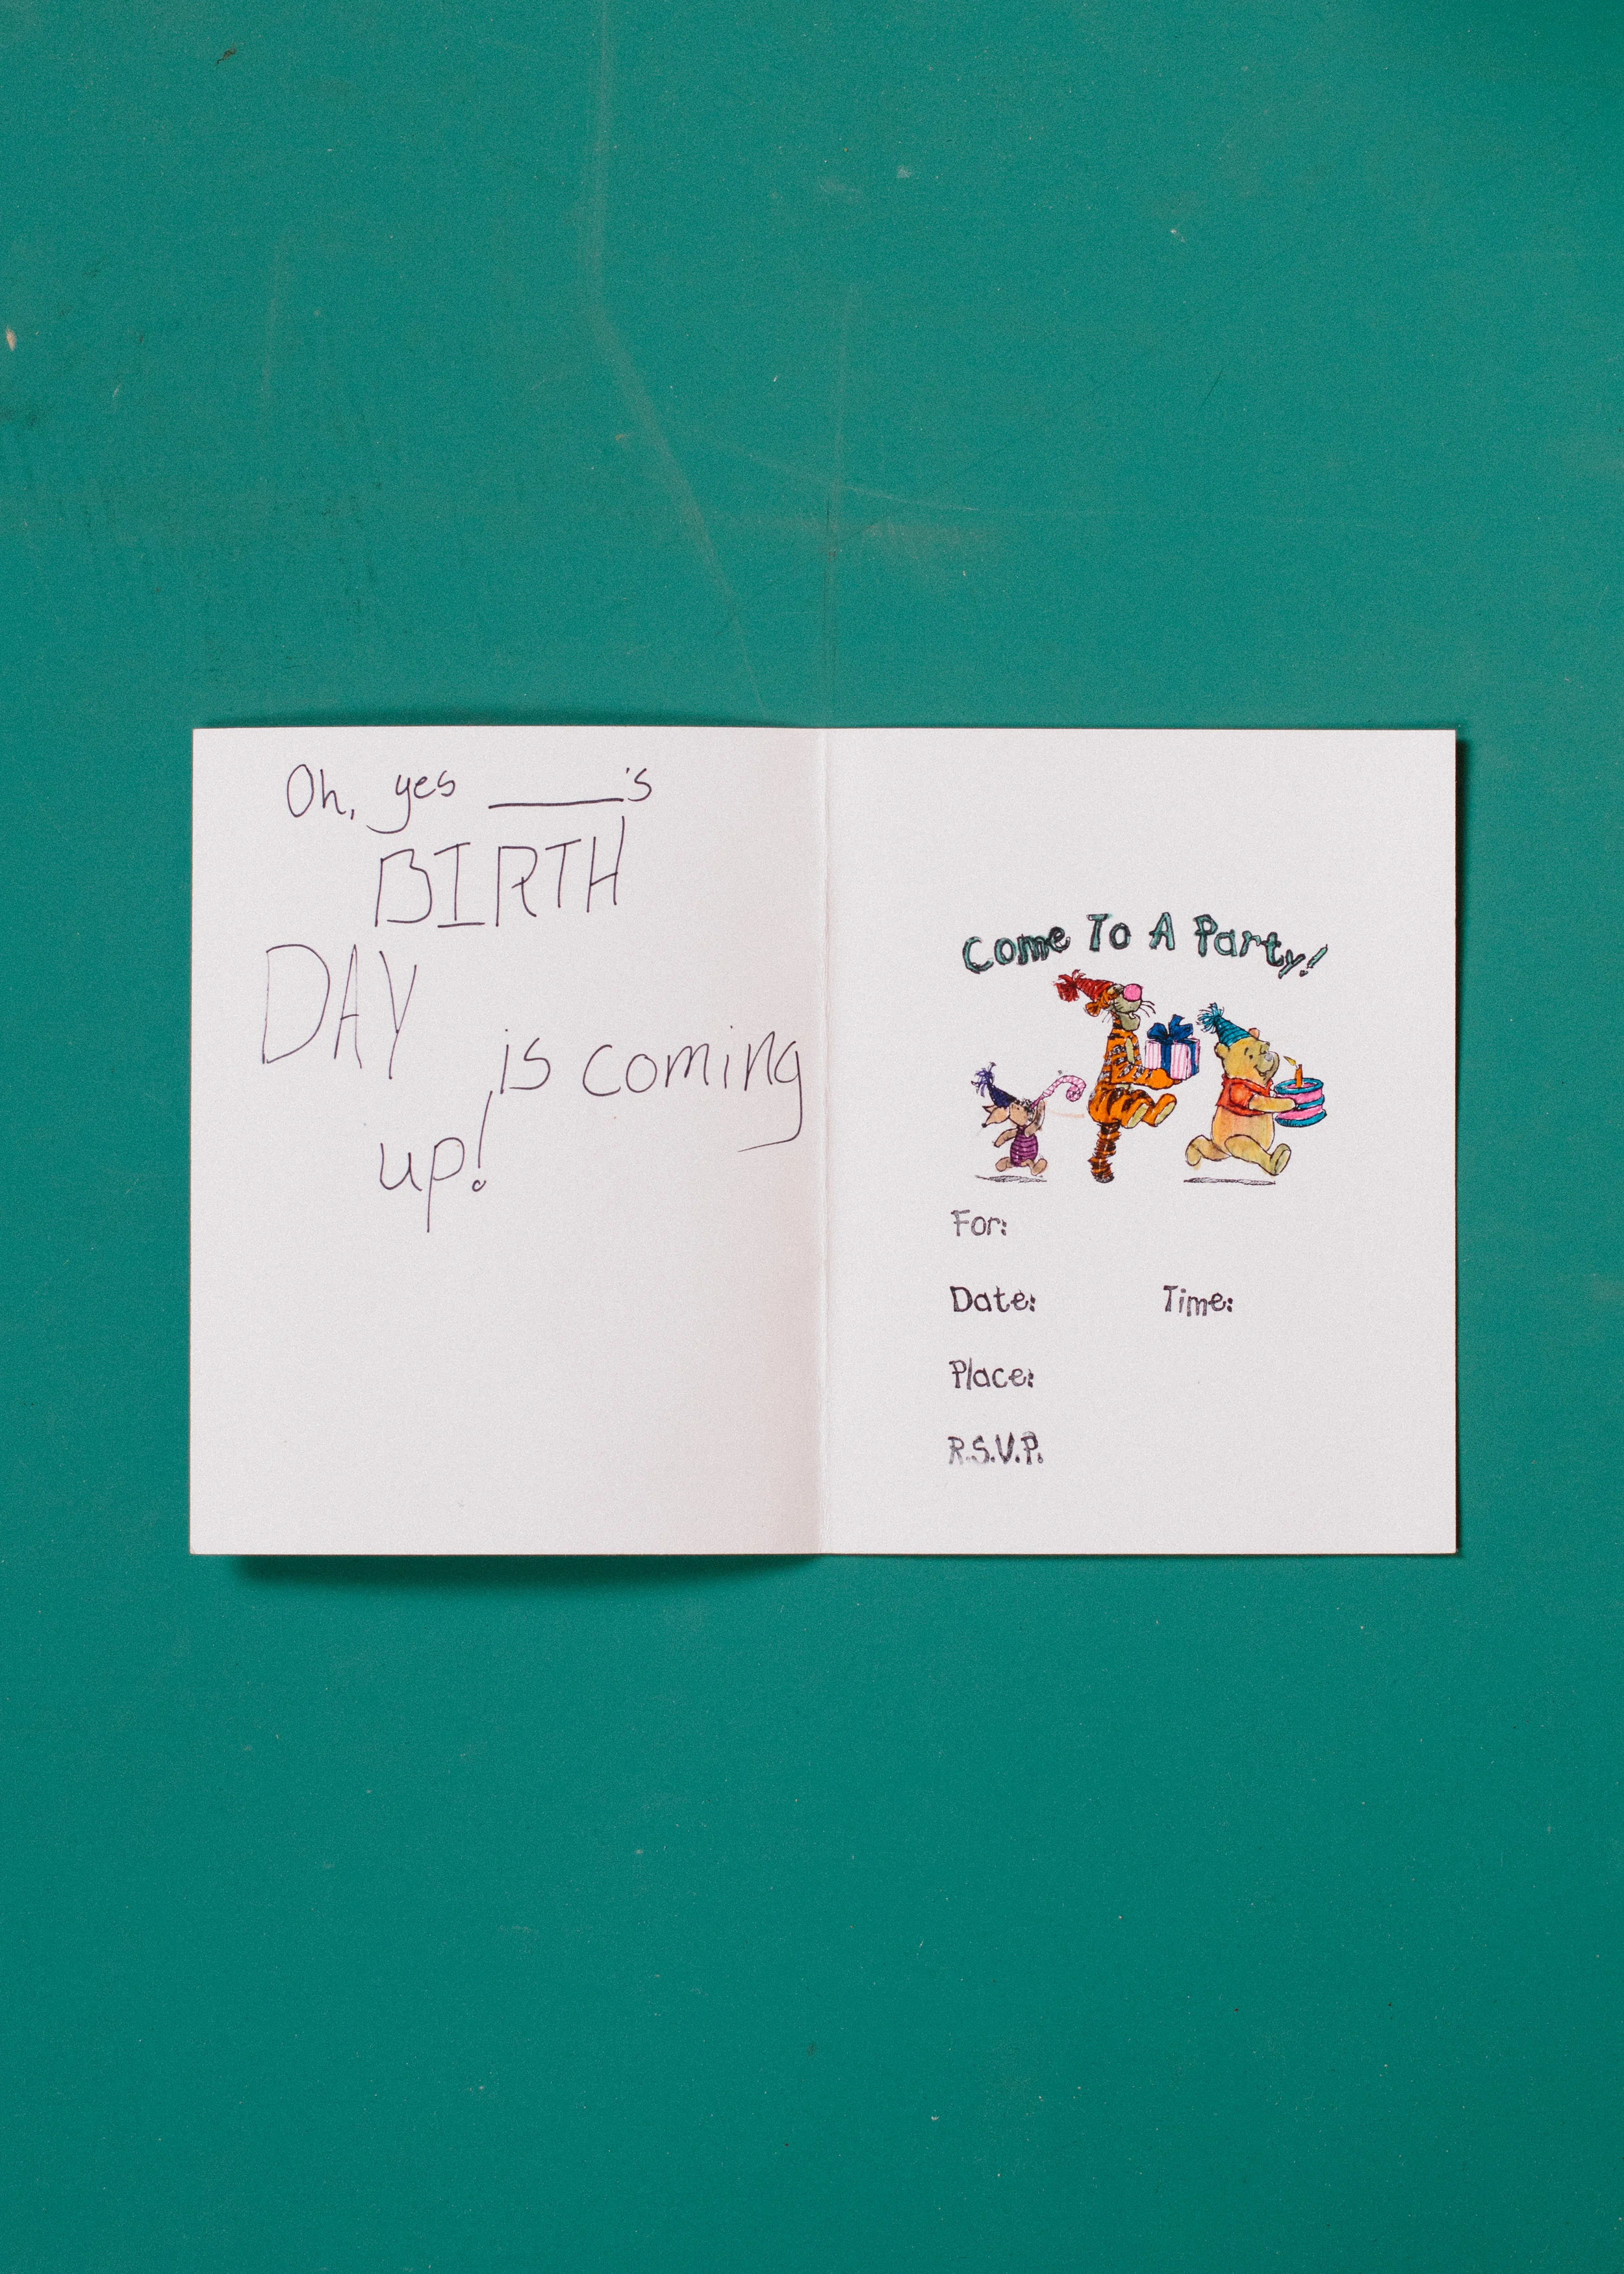 Oh, yes _____'s
BIRTH
DAY
is coming
up!
Come To A Party!
For:
Date: Time:
Place:
R.S.V.P.